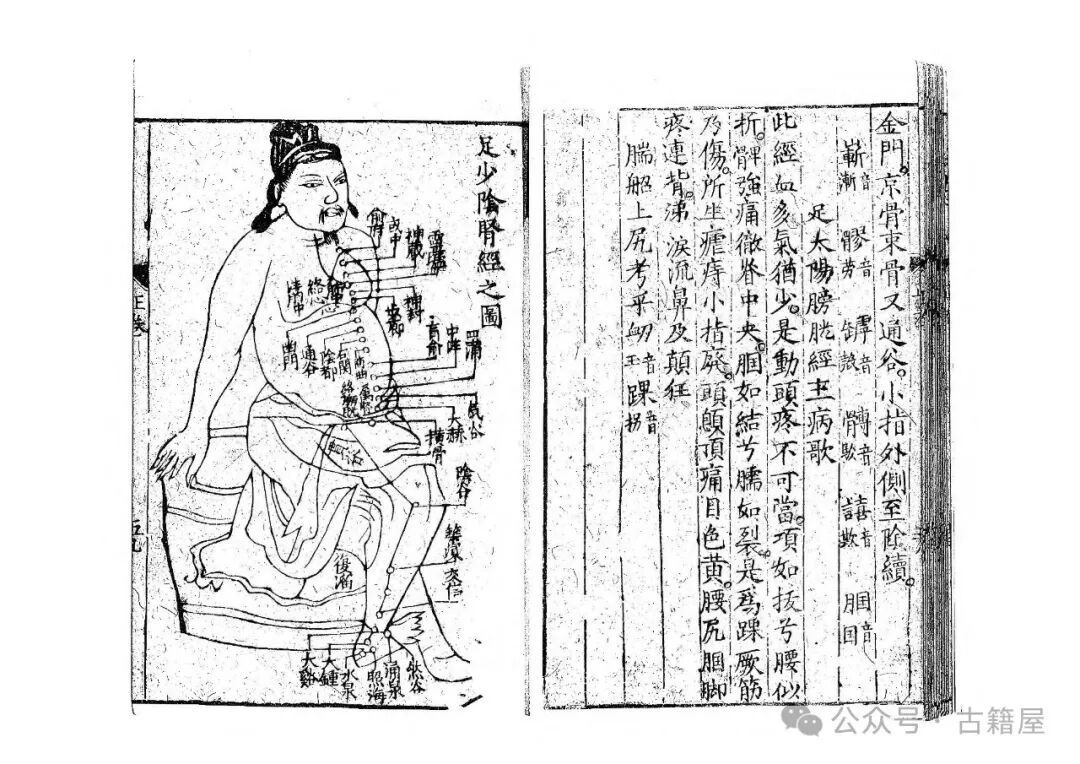 金門。京骨束骨又通谷。小指外側至陰續。
嶄音漸 髎音勞 譚音談 髆音博 譩音歎 膕音囯
足太陽膀胱經主病歌
此經血多氣猶少。是動頭疼不可當。項如拔兮腰似
折。髀強痛徹脊中央。膕如結兮腨如裂。是爲踝厥筋
乃傷。所生瘧痔小指廢。頭顖頂痛目色黄。腰尻膕脚
疼連背。涕淚流鼻及顛狂
腨 上尻考平 音 踝音拐
足少陰腎經之圖
俞府
或中
神藏
靈墟
神封
步郎
幽門
通谷
陰都
石關
商曲
肓俞
中注
四滿
氣穴
大赫
橫骨
陰谷
築賓
交信
復溜
絡心
絡膀胱
大谿
大鍾
水泉
照海
涌泉
然谷